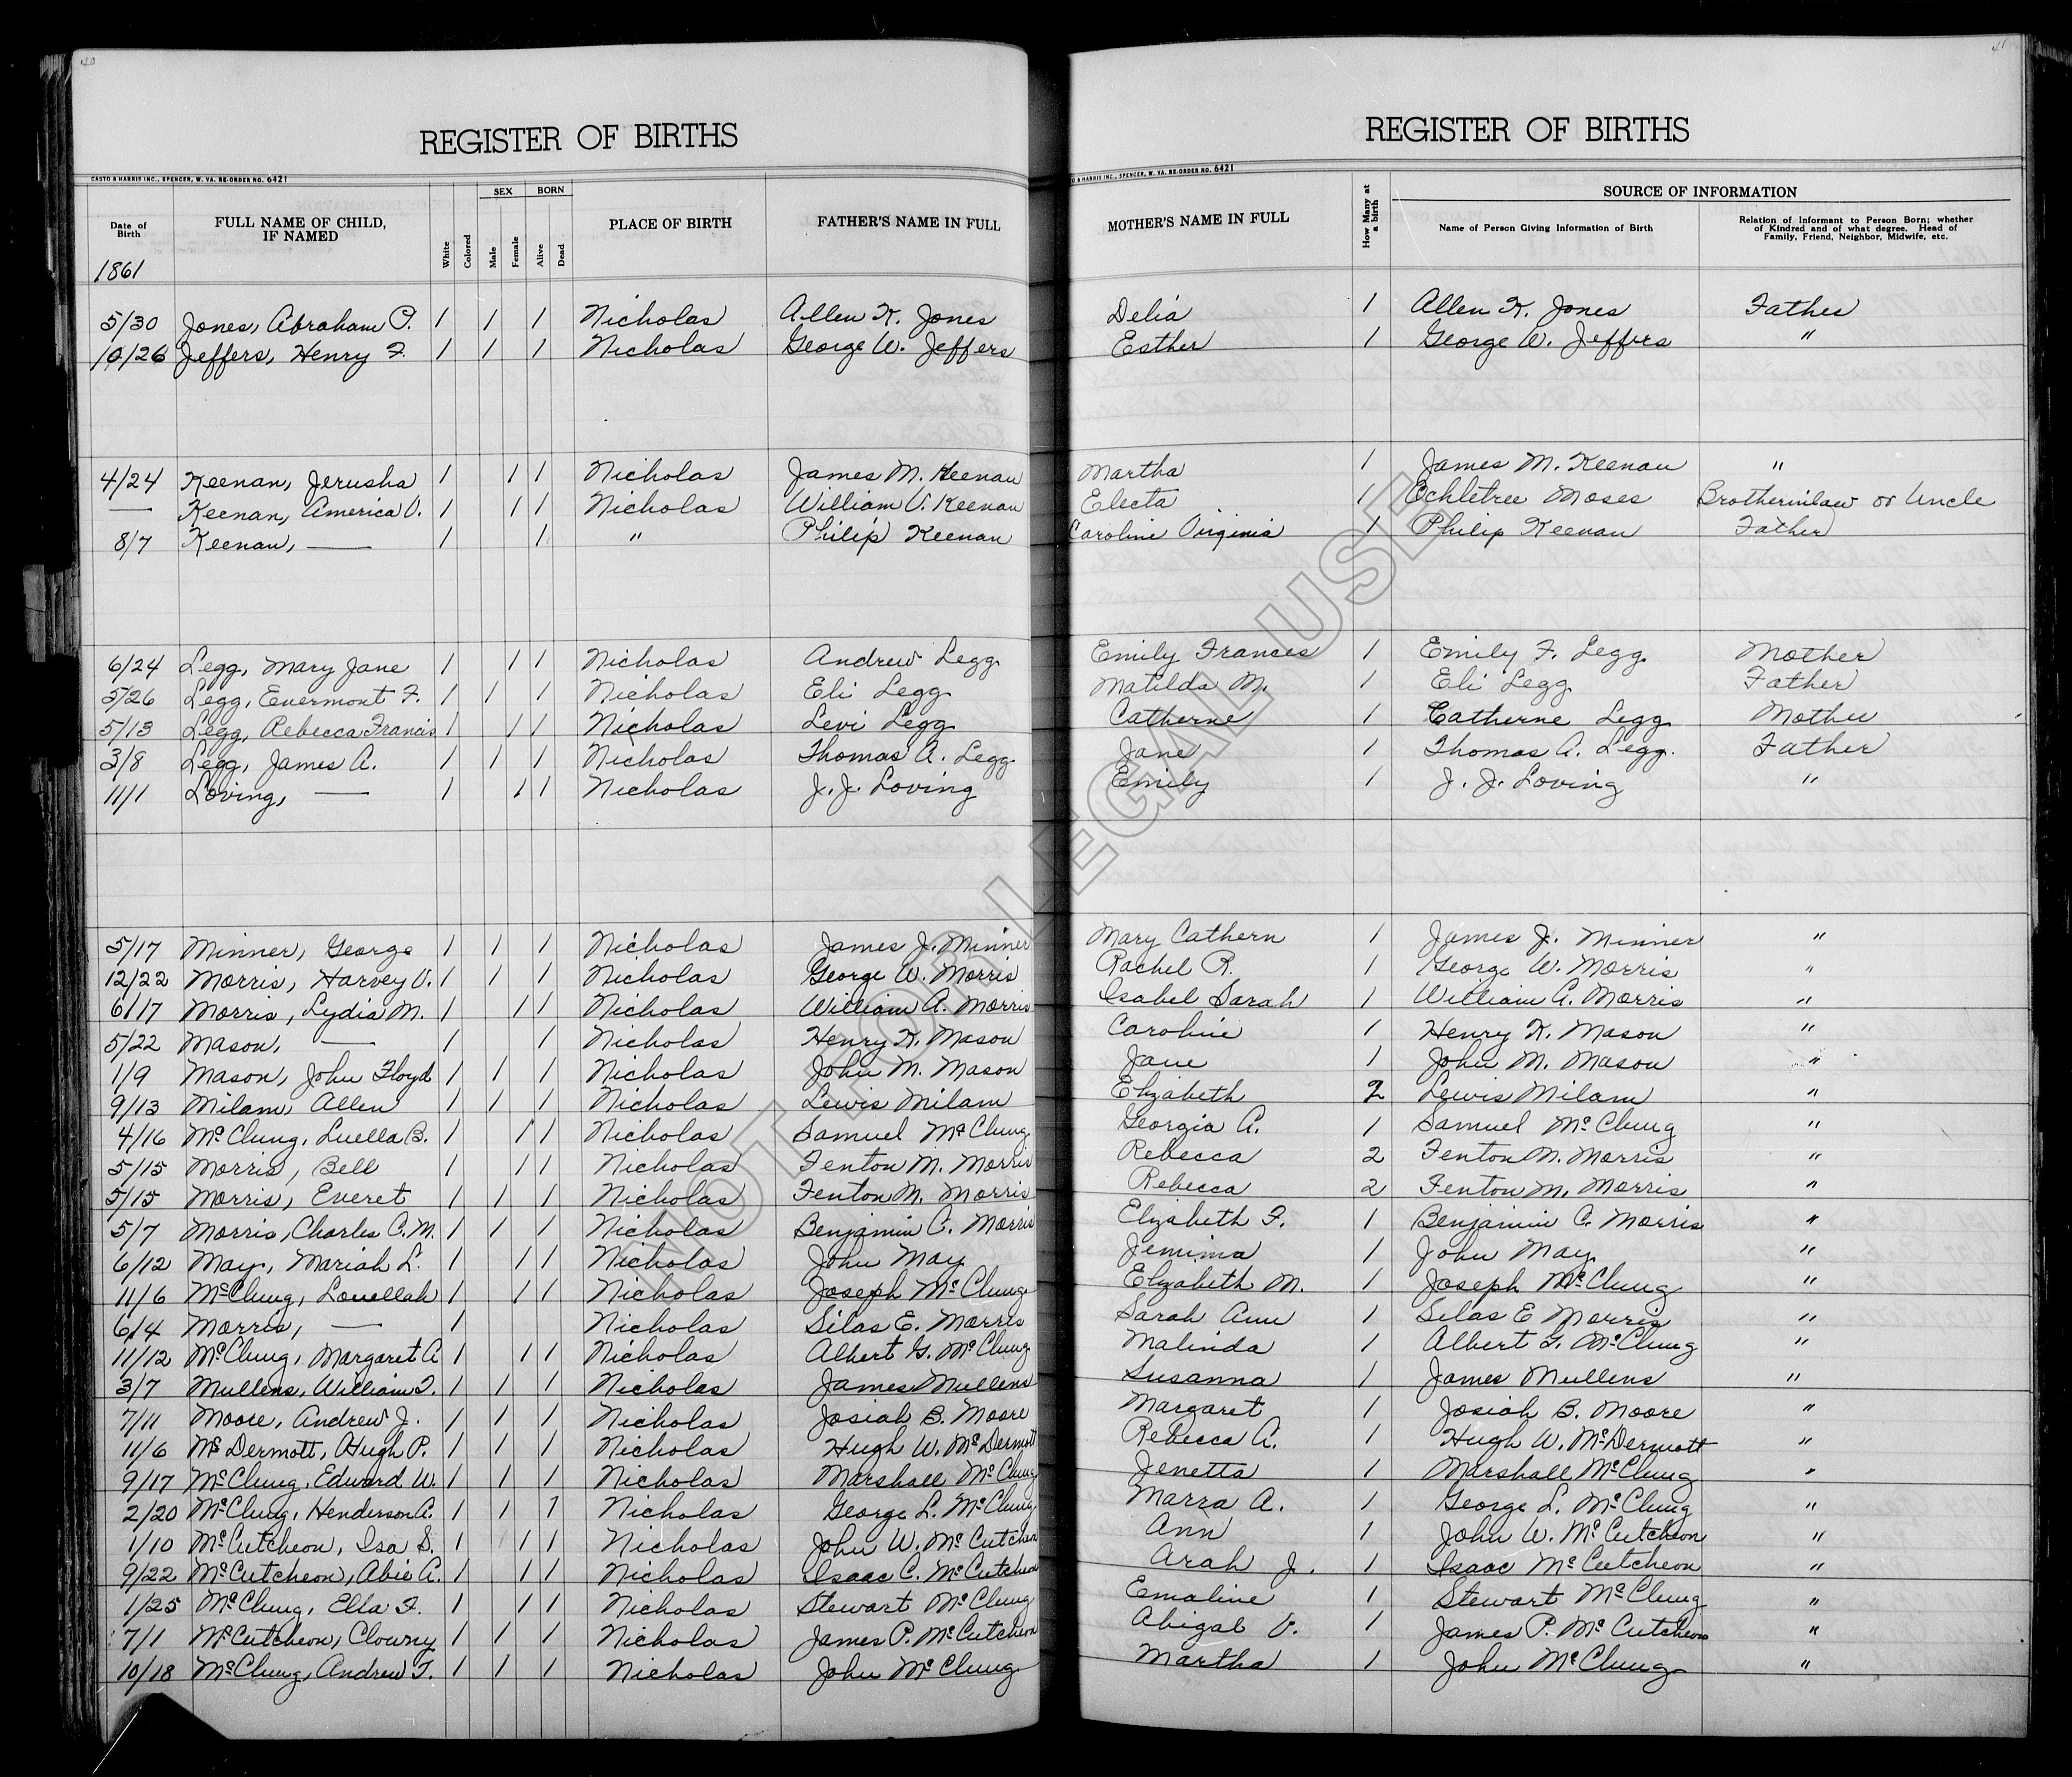 40
41
REGISTER OF BIRTHS
REGISTER OF BIRTHS
CASTO & HARRIS INC., SPENCER, W. VA. RE-ORDER NO. 6421
O & HARRIS INC., SPENCER, W. VA. RE-ORDER NO. 6421
Date of Birth FULL NAME OF CHILD, IF NAMED White Colored SEX Male Female BORN Alive Dead PLACE OF BIRTH FATHER'S NAME IN FULL MOTHER'S NAME IN FULL How Many at a birth SOURCE OF INFORMATION Name of Person Giving Information of Birth Relation of Informant to Person Born; whether of Kindred and of what degree. Head of Family, Friend, Neighbor, Midwife, etc.
1861
5/30 Jones, Abraham P. 1 1 1 Nicholas Allen K. Jones Delia 1 Allen K. Jones Father
10/26 Jeffers, Henry F. 1 1 1 Nicholas George W. Jeffers Esther 1 George W. Jeffers "
4/24 Keenan, Jerusha 1 1 1 Nicholas James M. Keenan Martha 1 James M. Keenan "
— Keenan, America V. 1 1 1 Nicholas William V. Keenan Electa 1 Ochletree Moses Brotherinlaw or Uncle
8/7 Keenan, — 1 1 " Philip Keenan Caroline Virginia 1 Philip Keenan Father
6/24 Legg, Mary Jane 1 1 1 Nicholas Andrew Legg Emily Frances 1 Emily F. Legg Mother
5/26 Legg, Evermont F. 1 1 1 Nicholas Eli Legg Matilda M. 1 Eli Legg Father
5/13 Legg, Rebecca Francis 1 1 1 Nicholas Levi Legg Catherne 1 Catherne Legg Mother
3/8 Legg, James A. 1 1 1 Nicholas Thomas A. Legg Jane 1 Thomas A. Legg. Father
11/1 Loving, — 1 1 1 Nicholas J. J. Loving Emily 1 J. J. Loving "
5/17 Minner, George 1 1 1 Nicholas James J. Minner Mary Cathern 1 James J. Minner "
12/22 Morris, Harvey V. 1 1 1 Nicholas George W. Morris Rachel R. 1 George W. Morris "
6/17 Morris, Lydia M. 1 1 1 Nicholas William A. Morris Isabel Sarah 1 William A. Morris "
5/22 Mason, — 1 1 Nicholas Henry K. Mason Caroline 1 Henry K. Mason "
1/9 Mason, John Floyd 1 1 1 Nicholas John M. Mason Jane 1 John M. Mason "
9/13 Milam, Allen 1 1 1 Nicholas Lewis Milam Elizabeth 2 Lewis Milam "
4/16 McClung, Luella B. 1 1 1 Nicholas Samuel McClung Georgia A. 1 Samuel McClung "
5/15 Morris, Bell 1 1 1 Nicholas Fenton M. Morris Rebecca 2 Fenton M. Morris "
5/15 Morris, Everet 1 1 1 Nicholas Fenton M. Morris Rebecca 2 Fenton M. Morris "
5/7 Morris, Charles C. M. 1 1 1 Nicholas Benjamin C. Morris Elizabeth F. 1 Benjamin C. Morris "
6/12 May, Mariah L. 1 1 1 Nicholas John May Jemima 1 John May "
11/6 McClung, Louellah 1 1 1 Nicholas Joseph McClung Elizabeth M. 1 Joseph McClung "
6/4 Morris, — 1 Nicholas Silas E. Morris Sarah Ann 1 Silas E Morris "
11/12 McClung, Margaret A 1 1 1 Nicholas Albert G. McClung Malinda 1 Albert G. McClung "
3/7 Mullens, William T. 1 1 1 Nicholas James Mullens Susanna 1 James Mullens "
7/11 Moore, Andrew J. 1 1 1 Nicholas Josiah B. Moore Margaret 1 Josiah B. Moore "
11/6 McDermott, Hugh P. 1 1 1 Nicholas Hugh W. McDermott Rebecca A. 1 Hugh W. McDermott "
9/17 McClung, Edward W. 1 1 1 Nicholas Marshall McClung Jenetta 1 Marshall McClung "
2/20 McClung, Henderson A. 1 1 1 Nicholas George L. McClung Marra A. 1 George L. McClung "
1/10 McCutcheon, Isa S. 1 1 1 Nicholas John W. McCutcheon Ann 1 John W. McCutcheon "
9/22 McCutcheon, Abie A. 1 1 1 Nicholas Isaac C. McCutcheon Arah J. 1 Isaac McCutcheon "
1/25 McClung, Ella F. 1 1 1 Nicholas Stewart McClung Emaline 1 Stewart McClung "
7/1 McCutcheon, Clowny 1 1 1 Nicholas James P. McCutcheon Abigal V. 1 James P. McCutcheon "
10/18 McClung, Andrew T. 1 1 1 Nicholas John McClung Martha 1 John McClung "
NOT FOR LEGAL USE